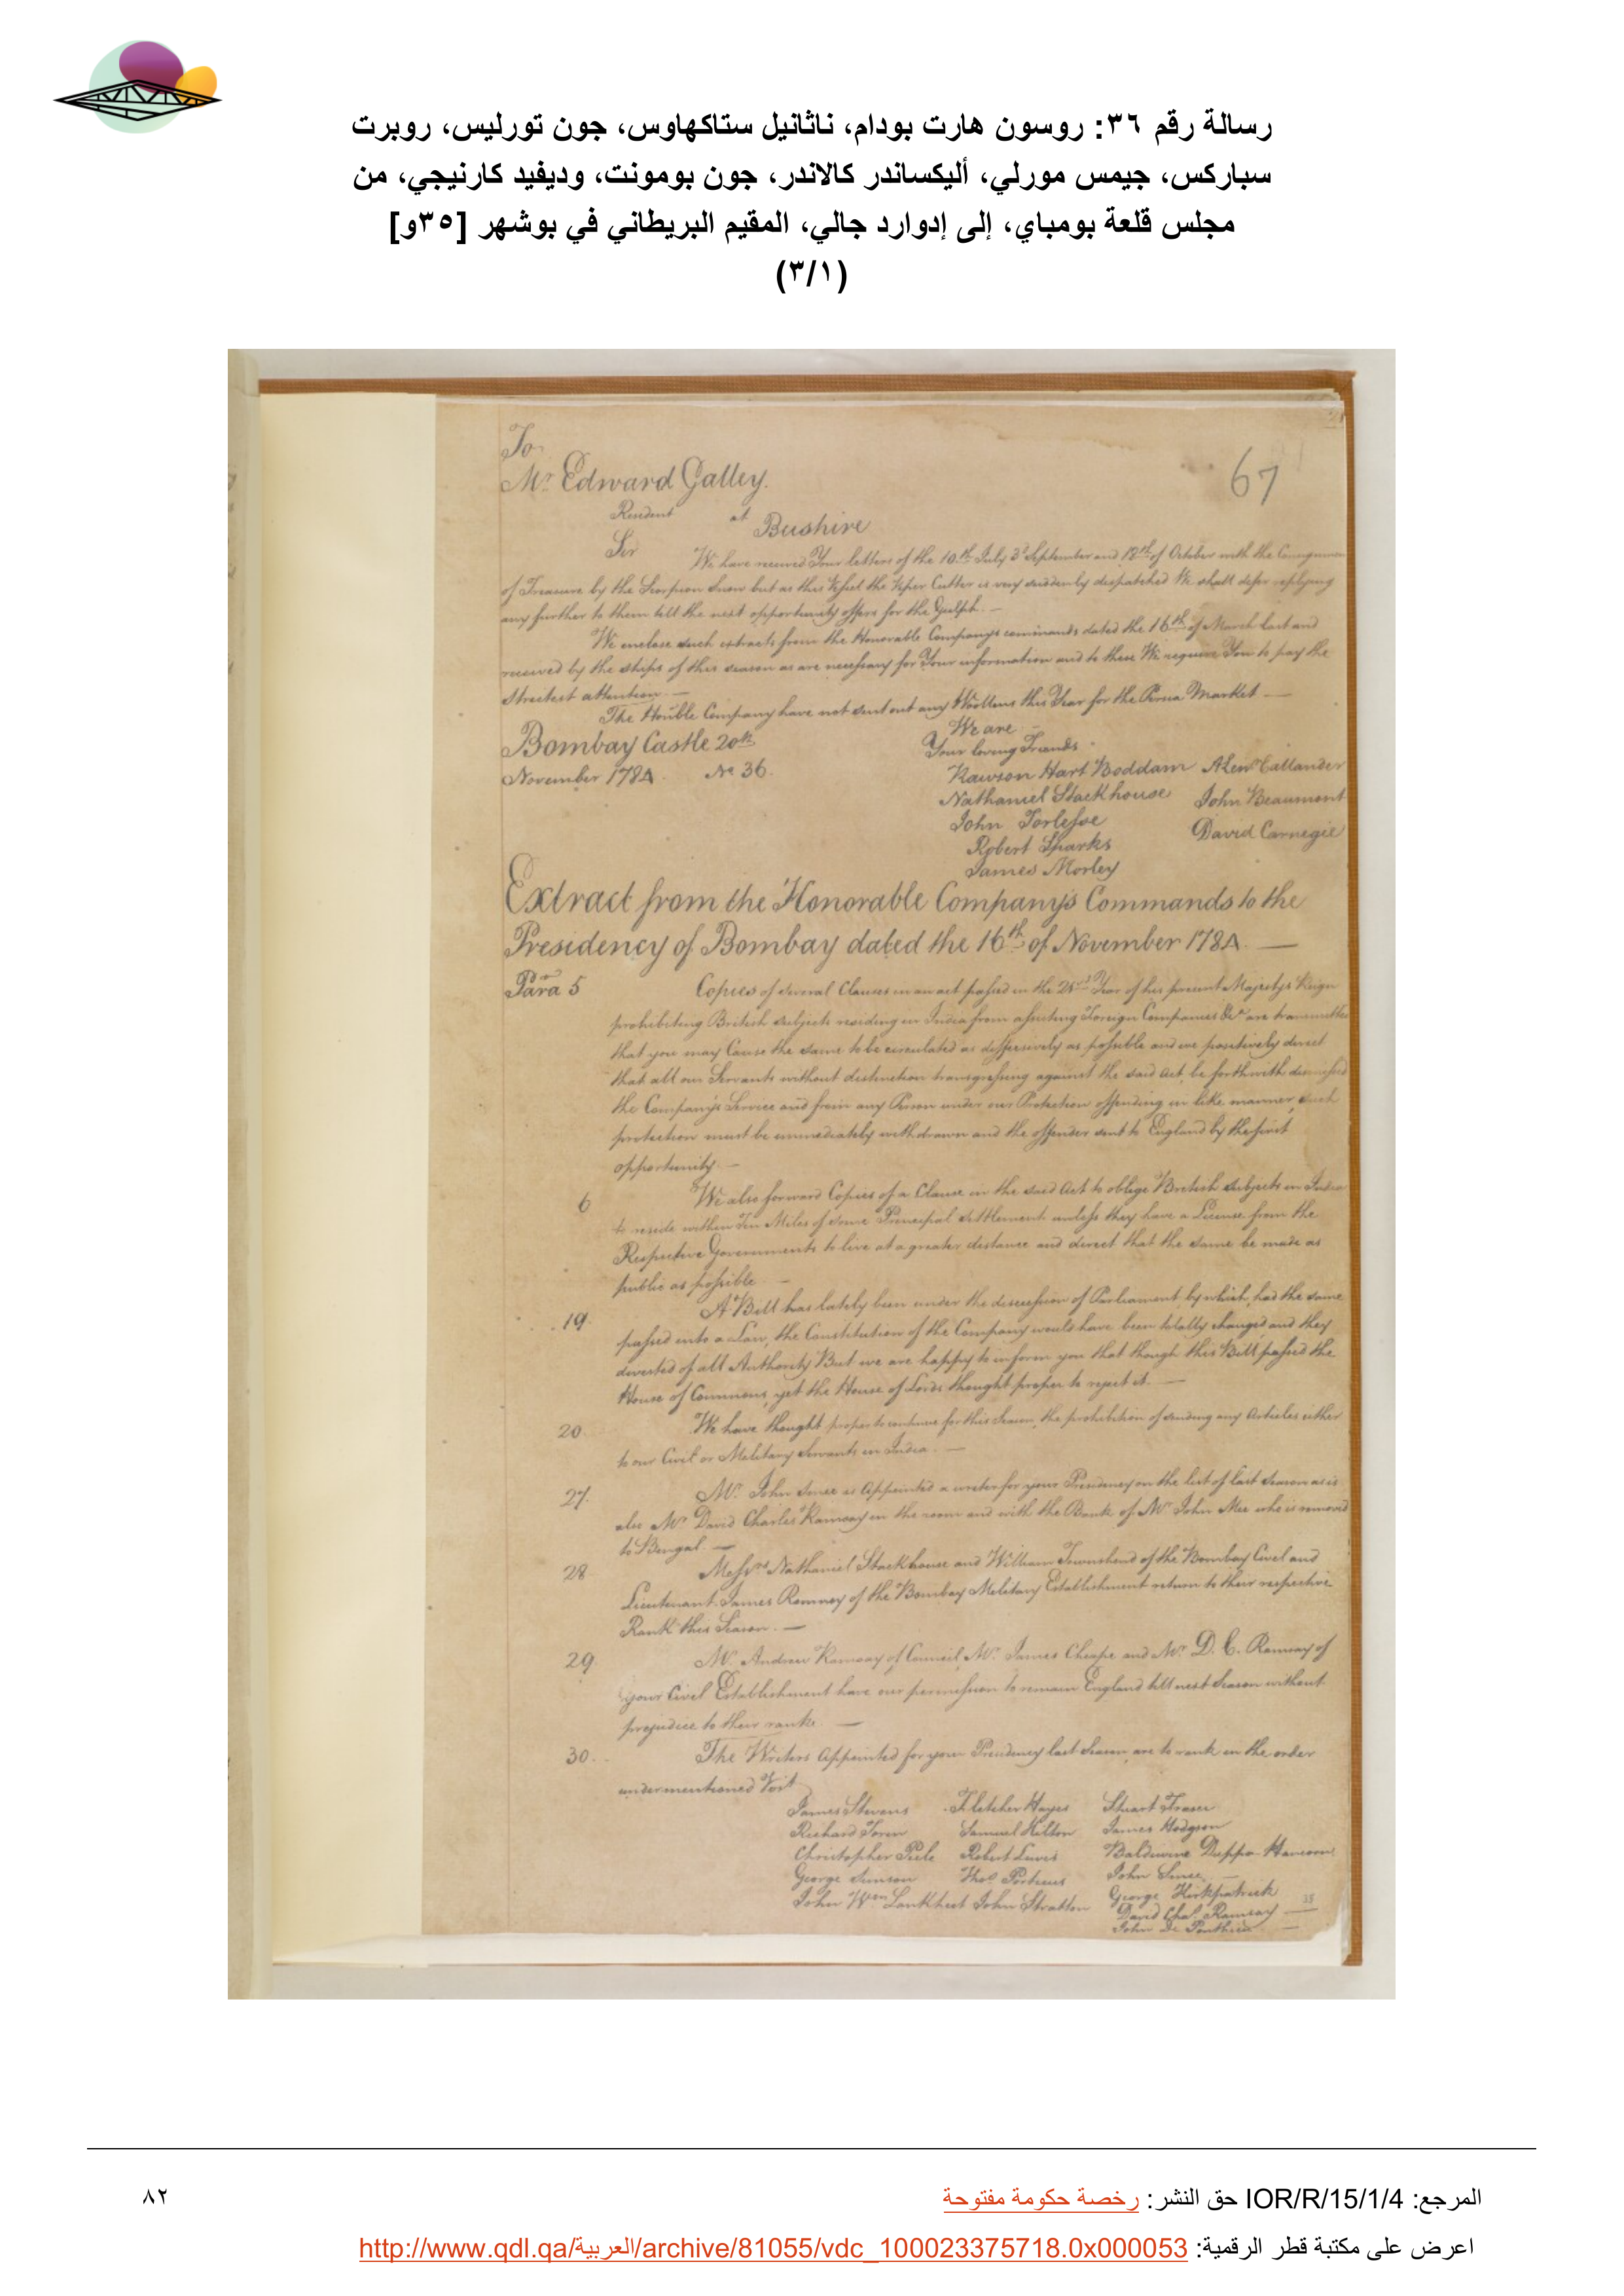 رسالة رقم ٣٦: روسون هارت بودام، ناثانيل ستاكهاوس، جون تورليس، روبرت
سباركس، جيمس مورلي، أليكساندر كالاندر، جون بومونت، وديفيد كارنيجي، من
مجلس قلعة بومباي، إلى إدوارد جالي، المقيم البريطاني في بوشهر [٣٥و]
(٣/١)
To
Mr. Edward Galley.
67
Resident at Bushire
Sir We have received Your letters of the 10th July 3d September and 12th of October with the
of Treasure by the Scorpion Snow but as this Vessel the Viper Cutter is very suddenly despatched We shall defer replying
any further to them till the next opportunity offers for the Gulph. —
We enclose such extracts from the Honorable Company's commands dated the 16th of March last and
received by the ships of this season as are necessary for Your information and to these We require You to pay the
strictest attention. —
The Honble Company have not sent out any Woollens this Year for the Persia Market —
We are
Your loving Friends
Bombay Castle 20th
November 1784. No 36.
Rawson Hart Boddam Alexr Callander
Nathaniel Stackhouse John Beaumont
John Torlesse David Carnegie
Robert Sparks
James Morley
Extract from the Honorable Company's Commands to the
Presidency of Bombay dated the 16th of November 1784. —
Para 5 Copies of several Clauses in an act passed in the Year of his present Majestys Reign
prohibiting British subjects residing in India from assisting Foreign Companies &ca are transmitted
that you may Cause the same to be circulated as diffusively as possible and we positively direct
that all our Servants without distinction transgressing against the said Act, be forthwith dismissed
the Company's Service and from any Person under our Protection offending in like manner, such
protection must be immediately withdrawn and the offender sent to England by the first
opportunity. —
6 We also forward Copies of a Clause in the said Act to oblige British subjects in India
to reside within Ten Miles of some Principal Settlement unless they have a License from the
Respective Governments to live at a greater distance and direct that the same be made as
public as possible —
19. A Bill has lately been under the discussion of Parliament, by which, had the same
passed into a Law, the Constitution of the Company would have been totally changed and they
divested of all Authority But we are happy to inform you that though this Bill passed the
House of Commons, yet the House of Lords thought proper to reject it. —
20. We have thought proper to continue for this Season, the prohibition of sending any Articles either
to our Civil or Military Servants in India. —
27. Mr. John Smee is Appointed a writer for your Presidency on the list of last Season as is
also Mr David Charles Ramsay in the room and with the Rank of Mr John Mee who is removed
to Bengal. —
28 Messrs Nathaniel Stackhouse and William Townshend of the Bombay Civil and
Lieutenant James Romney of the Bombay Military Establishment return to their respective
Rank this Season. —
29 Mr. Andrew Ramsay of Council, Mr. James Cheape and Mr. D. C. Ramsay of
your Civil Establishment have our permission to remain England till next Season without
prejudice to their ranks. —
30. The Writers Appointed for your Presidency last Season, are to rank in the order
undermentioned Vizt
James Stevens Fletcher Hayes Stuart Fraser
Richard Toren Samuel Hilton James Hodgson
Christopher Peele Robert Lewis Baldwine Duppa
George Simson Thos Porteus John Smee —
John Wm Lankheet John Stratton George Kirkpatrick
David Chas. Ramsay —
John De Ponthieu —
35
المرجع: IOR/R/15/1/4 حق النشر: رخصة حكومة مفتوحة
٨٢
اعرض على مكتبة قطر الرقمية: http://www.qdl.qa/العربية/archive/81055/vdc_100023375718.0x000053